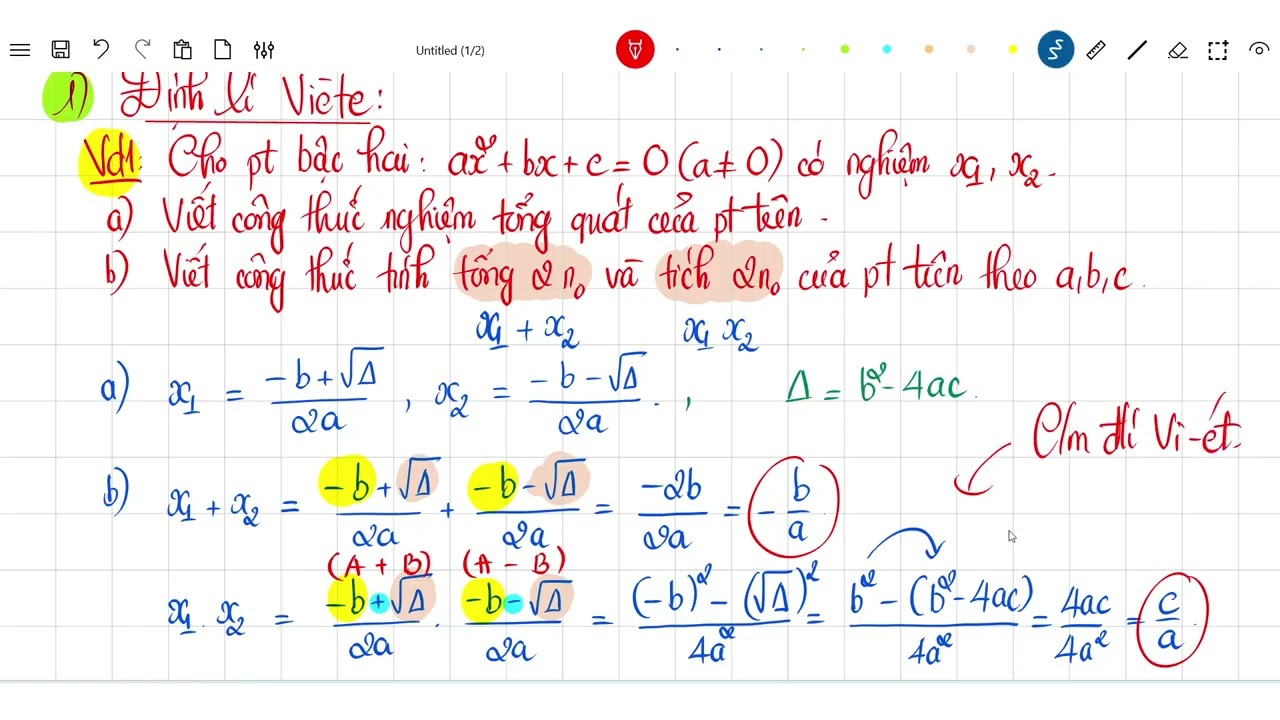 Untitled (1/2)
1) Định lí Viète:
Vd1: Cho pt bậc hai: ax² + bx + c = 0 (a ≠ 0) có nghiệm x₁, x₂.
a) Viết công thức nghiệm tổng quát của pt trên.
b) Viết công thức tính tổng 2 n₀ và tích 2n₀ của pt trên theo a, b, c.
x₁ + x₂ x₁ x₂
a) x₁ = (-b + √Δ)/2a , x₂ = (-b - √Δ)/2a . , Δ = b² - 4ac.
C/m đlí Vi-ét.
b) x₁ + x₂ = (-b + √Δ)/2a + (-b - √Δ)/2a = -2b/2a = -b/a
(A + B) (A - B)
x₁ . x₂ = (-b + √Δ)/2a . (-b - √Δ)/2a = ((-b)² - (√Δ)²)/4a² = (b² - (b² - 4ac))/4a² = 4ac/4a² = c/a